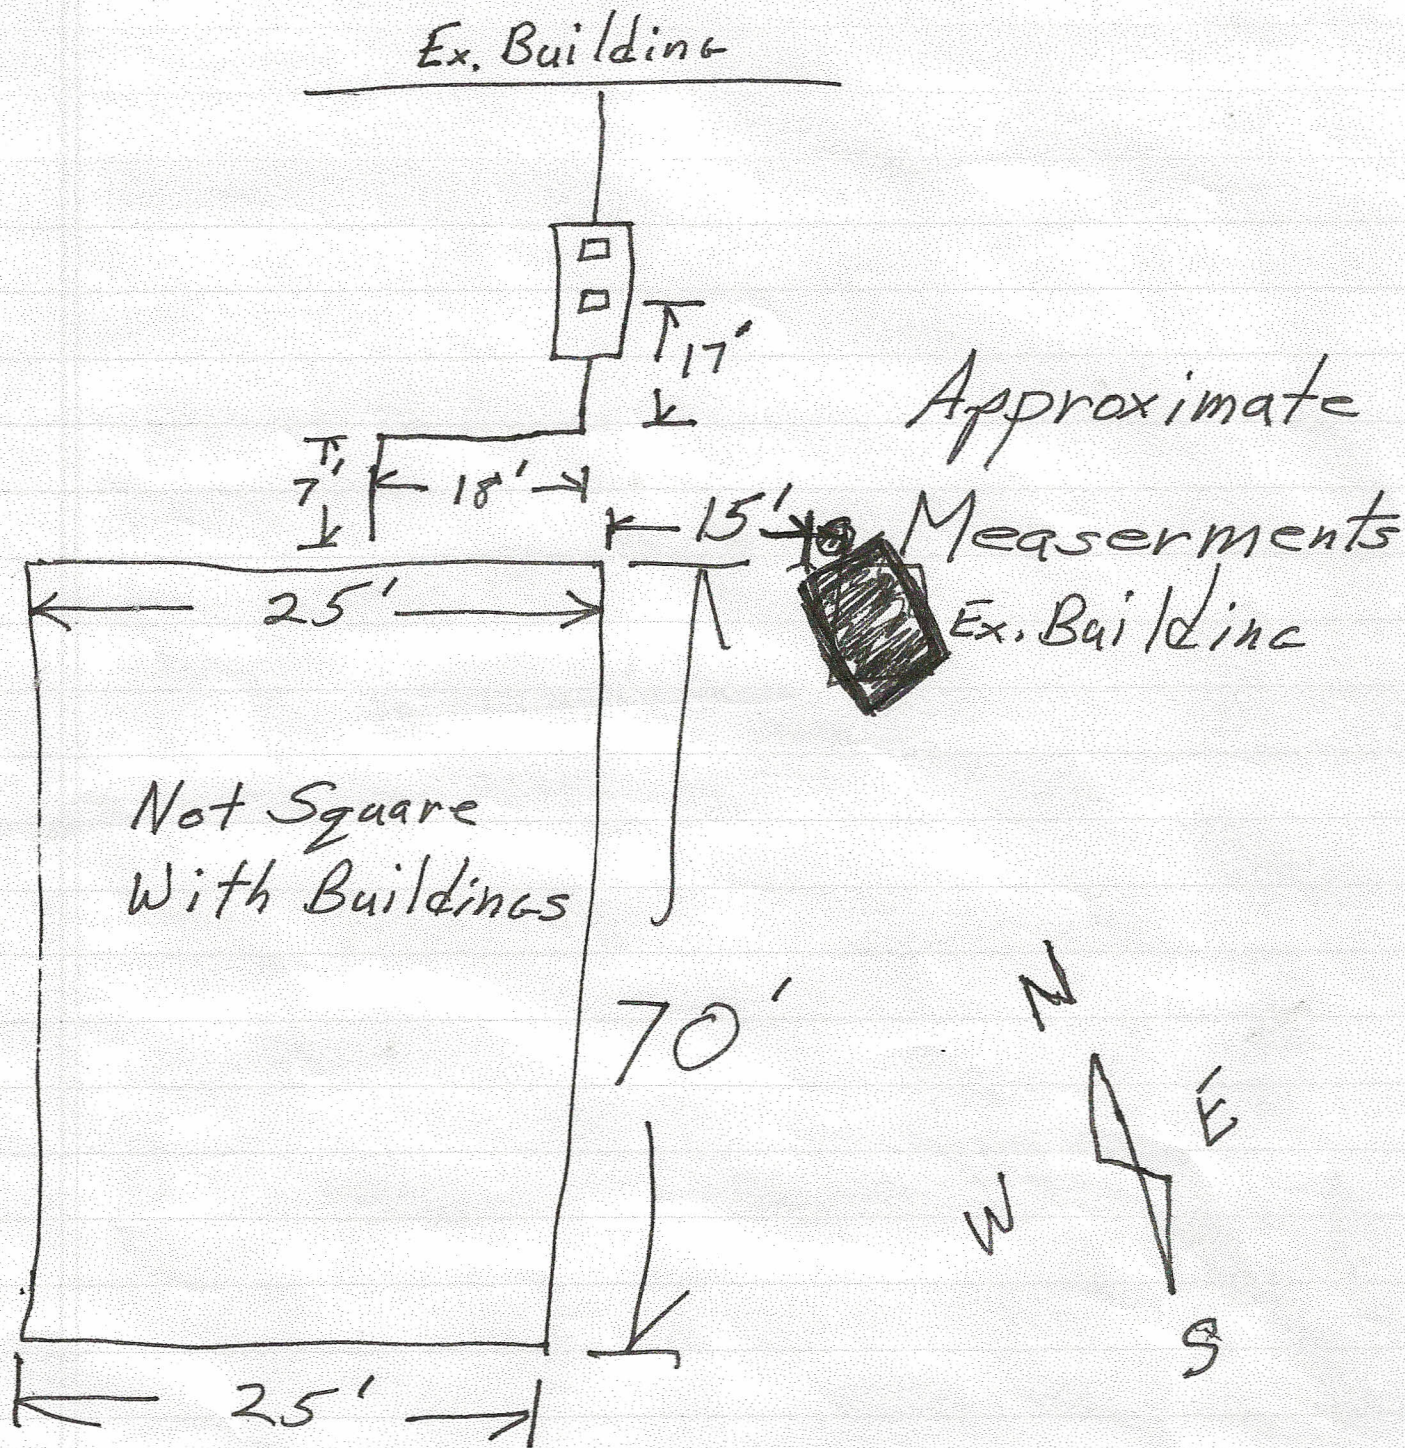 Ex. Building
17'
Approximate
7'
18'
15'
Measerments
25'
Ex. Building
Not Square
With Buildings
70'
N
E
W
S
25'